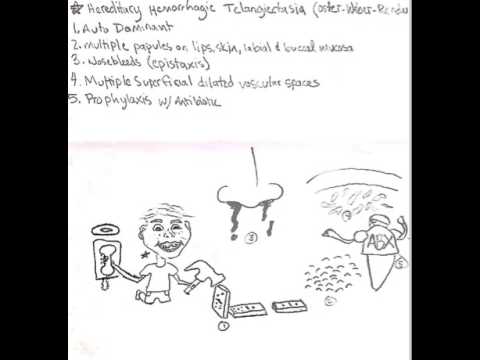 ☆ Hereditary Hemorrhagic Telangiectasia (oster-Weber-Rendu
1. Auto Dominant
2. multiple papules on lips, skin, labial & buccal mucosa
3. Nosebleeds (epistaxis)
4. Multiple Superficial dilated vascular spaces
5. Prophylaxis w/ Antibiotic
ABX
3
5
1